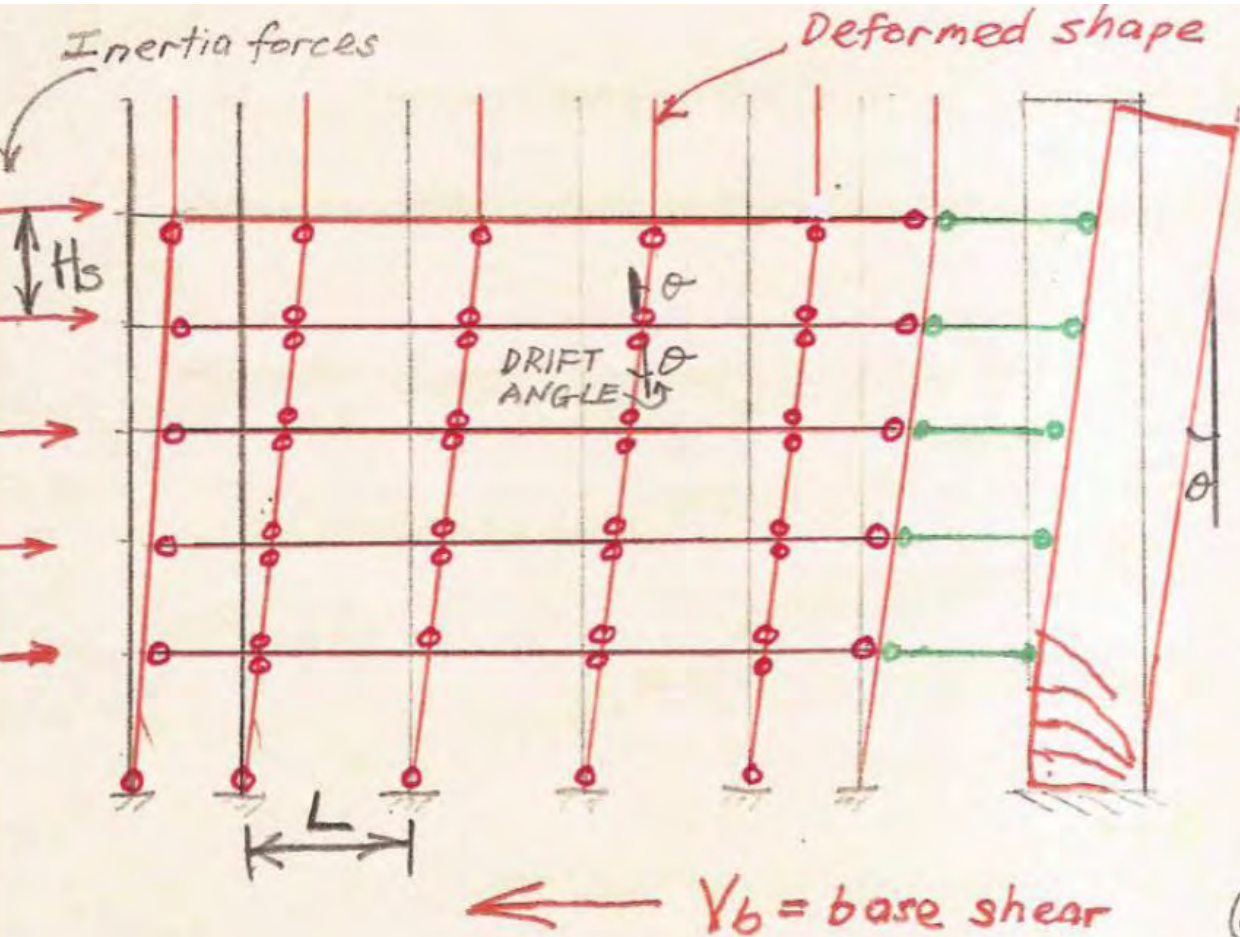 Inertia forces
Deformed shape
Hs
θ
DRIFT θ
ANGLE
θ
L
Vb = base shear